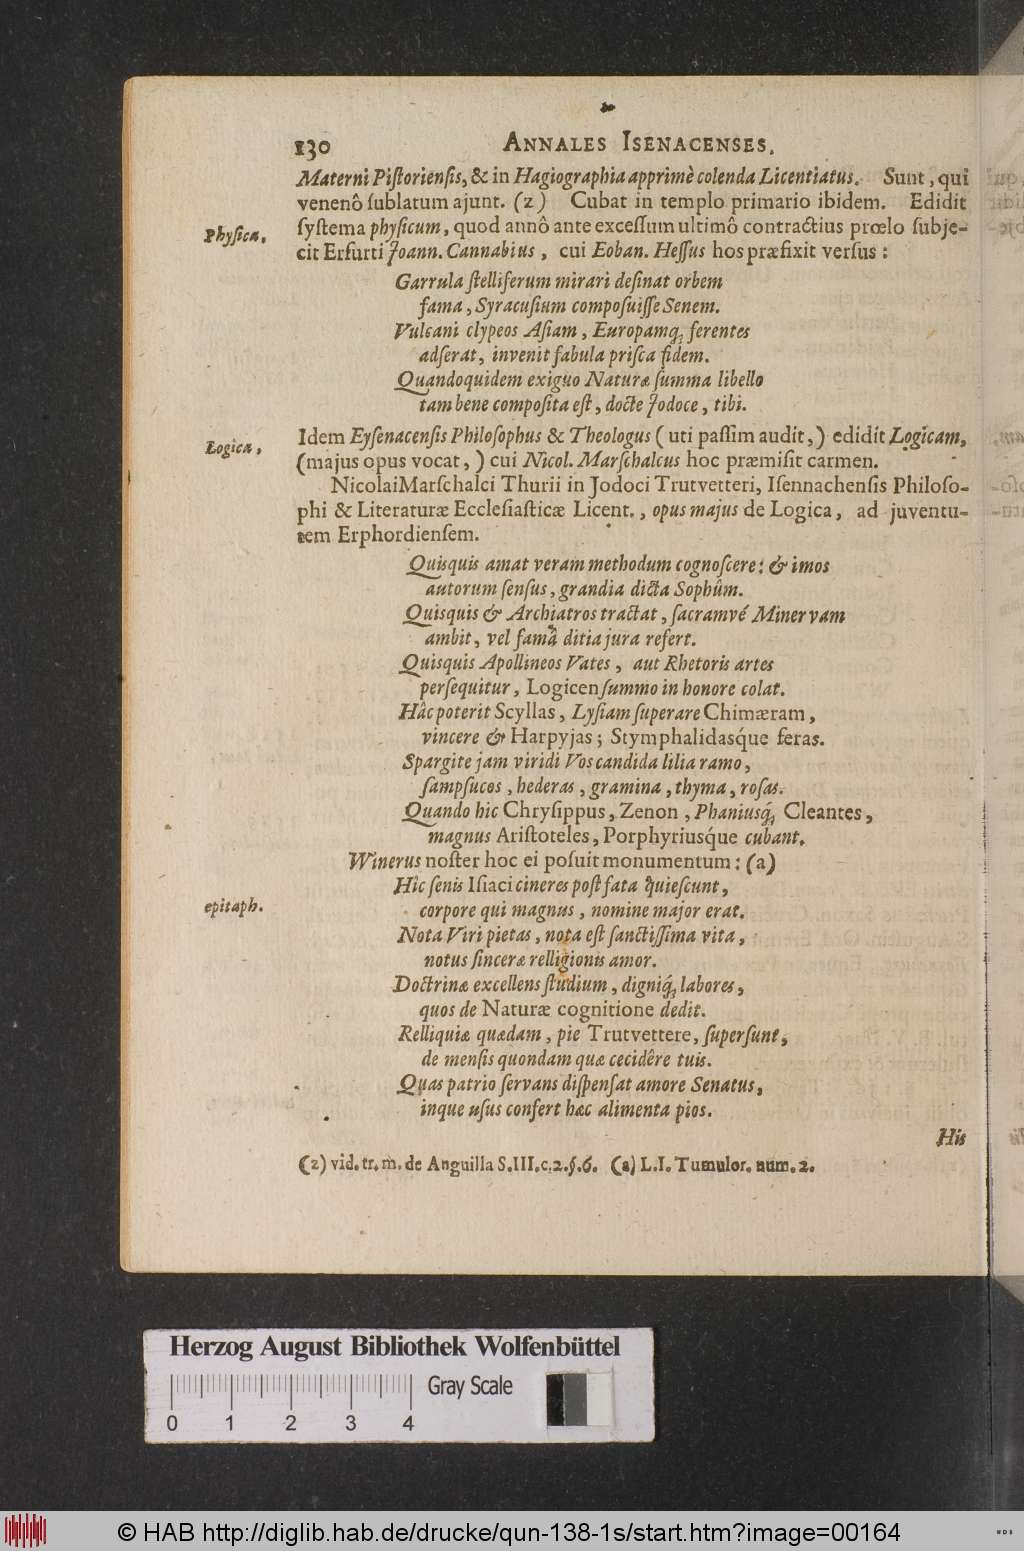 130 ANNALES ISENACENSES.
Materni Piſtorienſis, & in Hagiographia apprimè colenda Licentiatus. Sunt, qui
venenô ſublatum ajunt. (z) Cubat in templo primario ibidem. Edidit
Phyſica, ſyſtema phyſicum, quod annô ante exceſſum ultimô contractius prœlo ſubje-
cit Erfurti Joann. Cannabius, cui Eoban. Heſſus hos præfixit verſus:
Garrula ſtelliferum mirari deſinat orbem
fama, Syracuſium compoſuiſſe Senem.
Vulcani clypeos Aſiam, Europamq; ferentes
adſerat, invenit fabula priſca fidem.
Quandoquidem exiguo Naturæ ſumma libello
tam bene compoſita eſt, docte Jodoce, tibi.
Logica, Idem Eyſenacenſis Philoſophus & Theologus (uti paſſim audit,) edidit Logicam,
(majus opus vocat,) cui Nicol. Marſchalcus hoc præmiſit carmen.
Nicolai Marſchalci Thurii in Jodoci Trutvetteri, Iſennachenſis Philoſo-
phi & Literaturæ Eccleſiaſticæ Licent., opus majus de Logica, ad juventu-
tem Erphordienſem.
Quisquis amat veram methodum cognoſcere: & imos
autorum ſenſus, grandia dicta Sophûm.
Quisquis & Archiatros tractat, ſacramvé Minervam
ambit, vel famâ ditia jura refert.
Quisquis Apollineos Vates, aut Rhetoris artes
perſequitur, Logicen ſummo in honore colat.
Hâc poterit Scyllas, Lyſiam ſuperare Chimæram,
vincere & Harpyjas; Stymphalidasq́ue feras.
Spargite jam viridi Vos candida lilia ramo,
ſampſucos, hederas, gramina, thyma, roſas.
Quando hic Chryſippus, Zenon, Phaniusq́; Cleantes,
magnus Ariſtoteles, Porphyriusq́ue cubant.
Winerus noſter hoc ei poſuit monumentum: (a)
Hîc ſenis Iſiaci cineres poſt fata quieſcunt,
epitaph. corpore qui magnus, nomine major erat.
Nota Viri pietas, nota eſt ſanctiſſima vita,
notus ſinceræ relligionis amor.
Doctrinæ excellens ſtudium, digniq́; labores,
quos de Naturæ cognitione dedit.
Relliquiæ quædam, pie Trutvettere, ſuperſunt,
de menſis quondam quæ cecidêre tuis.
Quas patrio ſervans diſpenſat amore Senatus,
inque uſus confert hæc alimenta pios.
His
(z) vid. tr. m. de Anguilla S. III. c. 2. §. 6. (a) L. I. Tumulor. num. 2.
Herzog August Bibliothek Wolfenbüttel
Gray Scale
0 1 2 3 4
© HAB http://diglib.hab.de/drucke/qun-138-1s/start.htm?image=00164